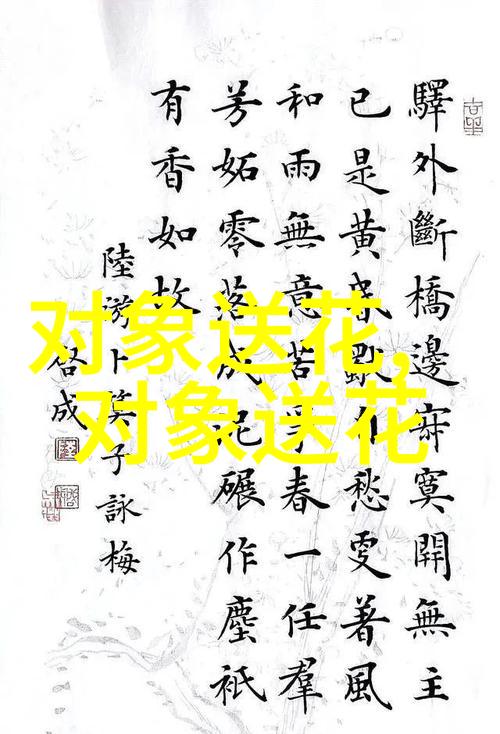 驛外斷橋邊寂寞開無主
已是黃昏獨自愁更著風
和雨無意苦爭春一任羣
芳妬零落成泥碾作塵祇
有香如故
陸游卜算子詠梅
成
对象送花,
对象送花